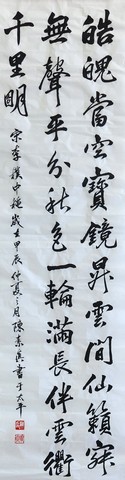 皓魄當空寶鏡昇雲間仙籟寂
無聲平分秋色一輪滿長伴雲衢
千里明
宋李樸中穐歲在甲辰仲夏之月陳東書于太平